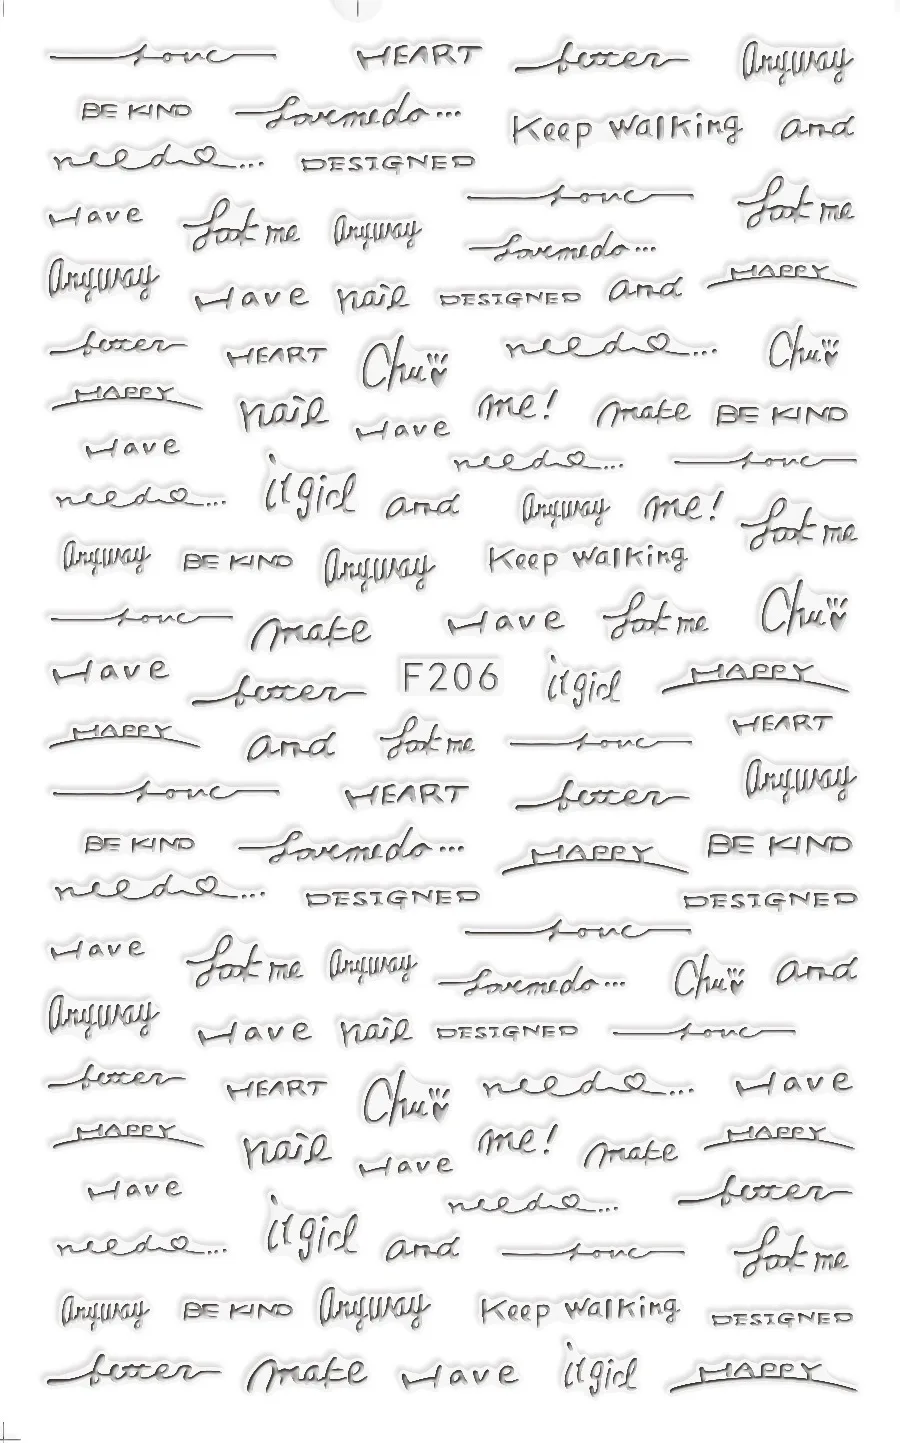 love HEART better Anyway
BE KIND Love me do... Keep walking and
need... DESIGNED
love Look me
Have Look me Anyway
Love me do...
Anyway Have nail DESIGNED and HAPPY
better HEART Chu need... Chu
HAPPY nail Have me! make BE KIND
Have need... love
need... it girl and Anyway me! Look me
Anyway BE KIND Anyway Keep walking
love make Have Look me Chu
Have better F206 it girl HAPPY
HAPPY and Look me love HEART
love HEART better Anyway
BE KIND Love me do... HAPPY BE KIND
need... DESIGNED DESIGNED
love
Have Look me Anyway Love me do... Chu and
Anyway Have nail DESIGNED love
better HEART Chu need... Have
HAPPY nail Have me! make HAPPY
Have need... better
need... it girl and love Look me
Anyway BE KIND Anyway Keep walking DESIGNED
better make Have it girl HAPPY